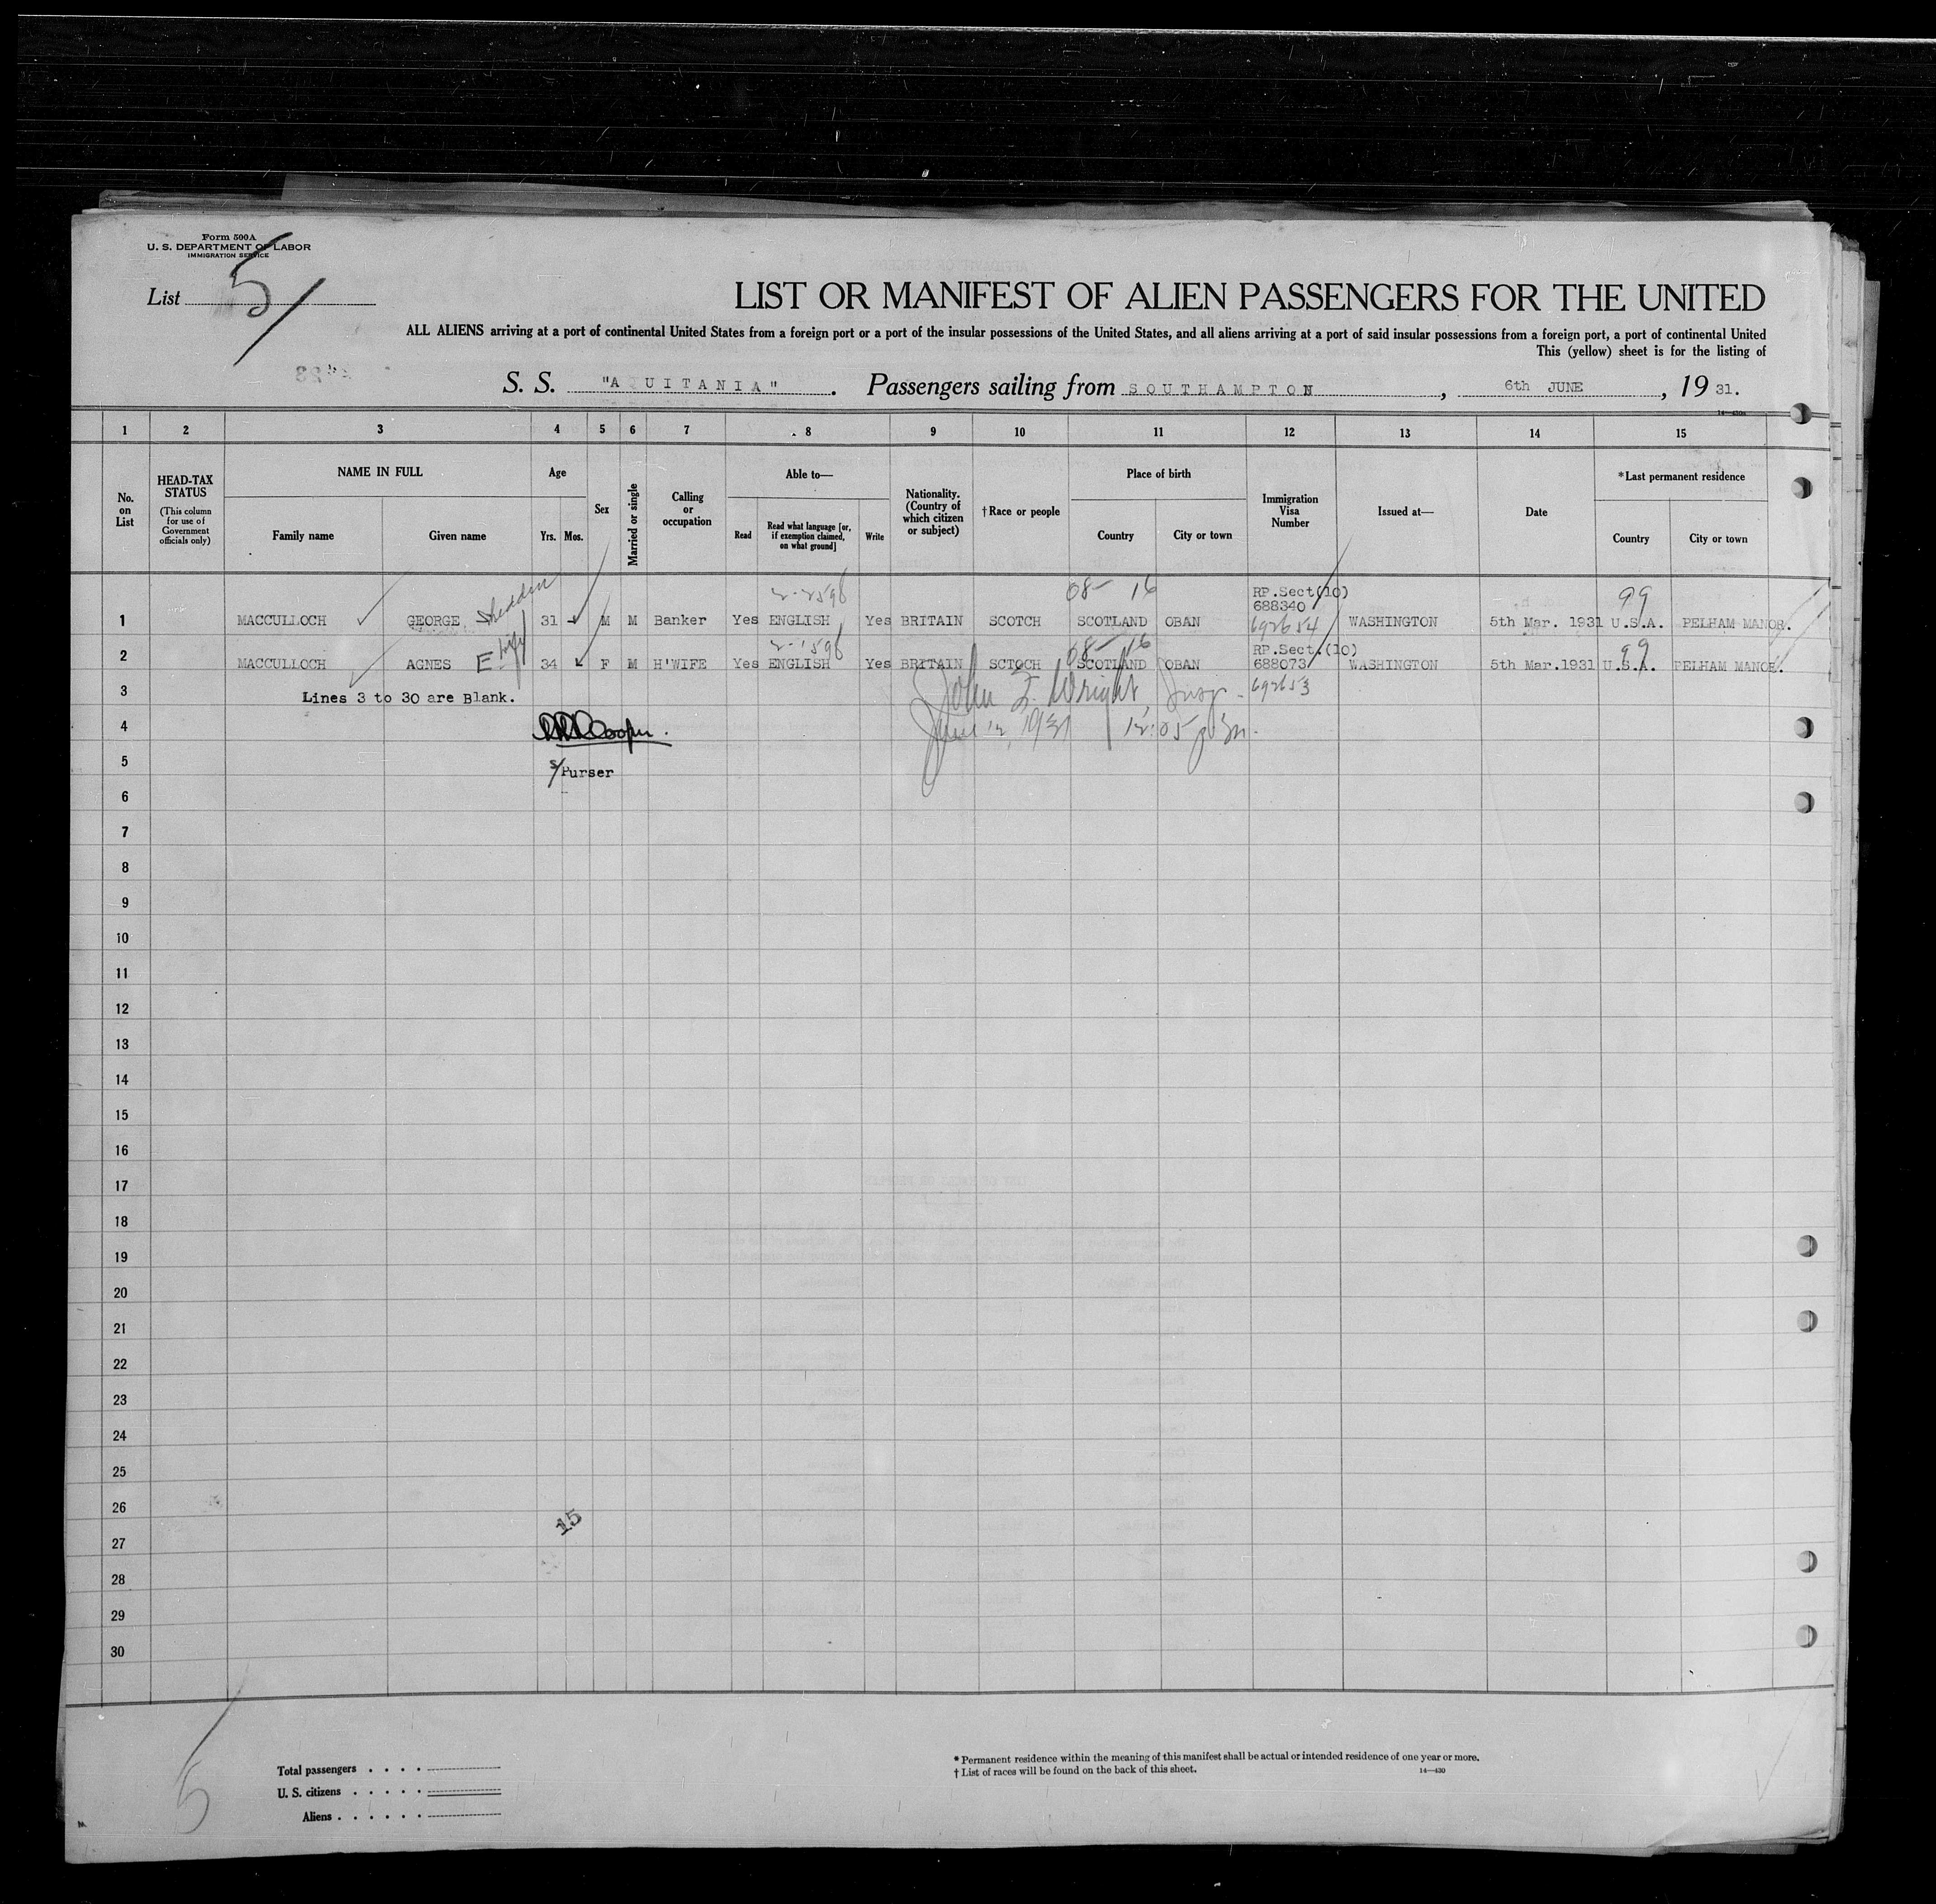 Form 500A
U. S. DEPARTMENT OF LABOR
IMMIGRATION SERVICE
List 5
LIST OR MANIFEST OF ALIEN PASSENGERS FOR THE UNITED
ALL ALIENS arriving at a port of continental United States from a foreign port or a port of the insular possessions of the United States, and all aliens arriving at a port of said insular possessions from a foreign port, a port of continental United
This (yellow) sheet is for the listing of
S. S. "AQUITANIA". Passengers sailing from SOUTHAMPTON, 6th JUNE, 19 31.
1 2 3 4 5 6 7 8 9 10 11 12 13 14 15
No. on List
HEAD-TAX STATUS
(This column for use of Government officials only)
NAME IN FULL
Family name Given name
Age
Yrs. Mos.
Sex
Married or single
Calling or occupation
Able to—
Read
Read what language [or, if exemption claimed, on what ground]
Write
Nationality. (Country of which citizen or subject)
†Race or people
Place of birth
Country City or town
Immigration Visa Number
Issued at—
Date
*Last permanent residence
Country City or town
08- 16 RP.Sect(10) 99
688340
1 MACCULLOCH GEORGE 31 M M Banker Yes ENGLISH Yes BRITAIN SCOTCH SCOTLAND OBAN 692654 WASHINGTON 5th Mar. 1931 U.S.A. PELHAM MANOR.
08- 16 RP.Sect.(10) 99
2 MACCULLOCH AGNES E 34 F M H'WIFE Yes ENGLISH Yes BRITAIN SCTOCH SCOTLAND OBAN 688073 WASHINGTON 5th Mar.1931 U.S.A. PELHAM MANOR.
3 Lines 3 to 30 are Blank. John Wright, Insp. 692653
4 Cooper. June 12, 1931 12:05 p.m.
5 s/Purser
6
7
8
9
10
11
12
13
14
15
16
17
18
19
20
21
22
23
24
25
26
15
27
28
29
30
5
Total passengers
U. S. citizens
Aliens
* Permanent residence within the meaning of this manifest shall be actual or intended residence of one year or more.
† List of races will be found on the back of this sheet. 14—430